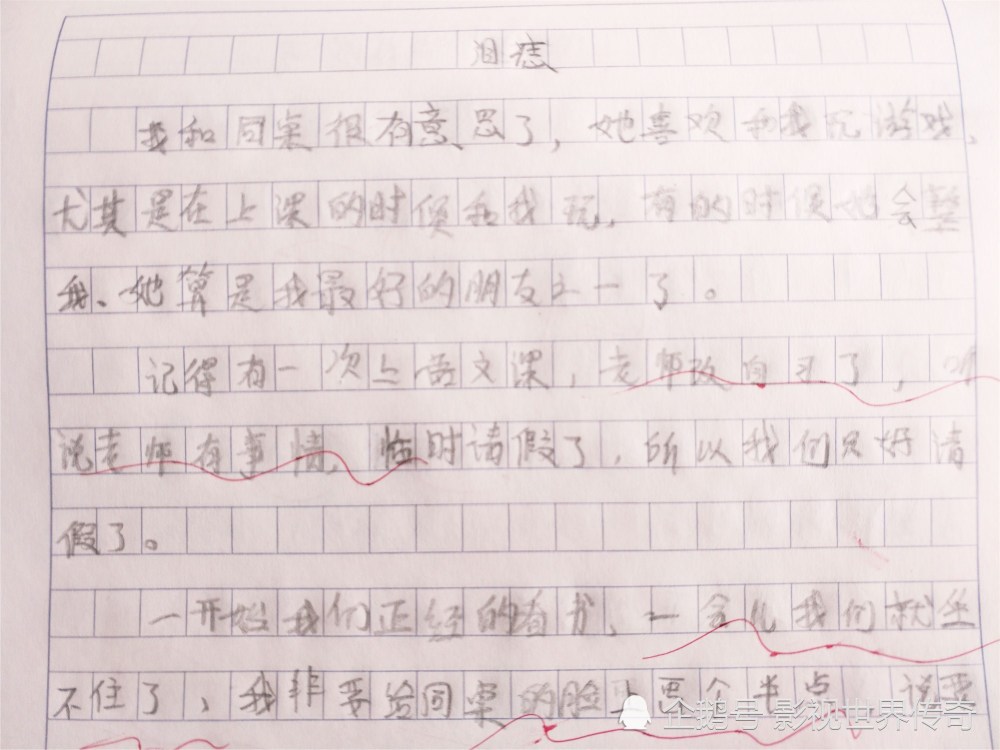 泪痣
我和同桌很有意思了，她喜欢和我玩游戏，
尤其是在上课的时候和我玩，有的时候她会整
我、她算是我最好的朋友之一了。
记得有一次上语文课，老师改自习了，听
说老师有事情，临时请假了，所以我们只好请
假了。
一开始我们正经的看书，一会儿我们就坐
不住了，我非要给同桌的脸上画个半点，说要
企鹅号 影视世界传奇